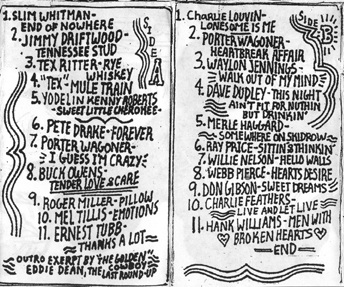 1. SLIM WHITMAN-
END OF NOWHERE
2. JIMMY DRIFTWOOD-
TENNESSEE STUD
3. TEX RITTER-RYE
WHISKEY
4. "TEX"-MULE TRAIN
5. YODELIN KENNY ROBERTS
-SWEET LITTLE CHEROKEE-
6. PETE DRAKE-FOREVER
7. PORTER WAGONER-
I GUESS I'M CRAZY
8. BUCK OWENS-
TENDER LOVE & CARE
9. ROGER MILLER-PILLOW
10. MEL TILLIS-EMOTIONS
11. ERNEST TUBB-
THANKS A LOT
OUTRO EXERPT BY "THE GOLDEN COWBOY"
EDDIE DEAN, THE LAST ROUND-UP
SIDE A
1. Charlie LOUVIN-
LONESOME IS ME
2. PORTER WAGONER-
HEARTBREAK AFFAIR
3. WAYLON JENNINGS-
WALK OUT OF MY MIND
4. DAVE DUDLEY-THIS NIGHT
AIN'T FIT FOR NUTHIN
BUT DRINKIN'
5. MERLE HAGGARD-
SOMEWHERE ON SKIDROW
6. RAY PRICE-SITTIN & THINKIN'
7. WILLIE NELSON-HELLO WALLS
8. WEBB PIERCE-HEARTS DESIRE
9. DON GIBSON-SWEET DREAMS
10. CHARLIE FEATHERS-
LIVE AND LET LIVE
11. HANK WILLIAMS-MEN WITH
BROKEN HEARTS
-END-
SIDE B